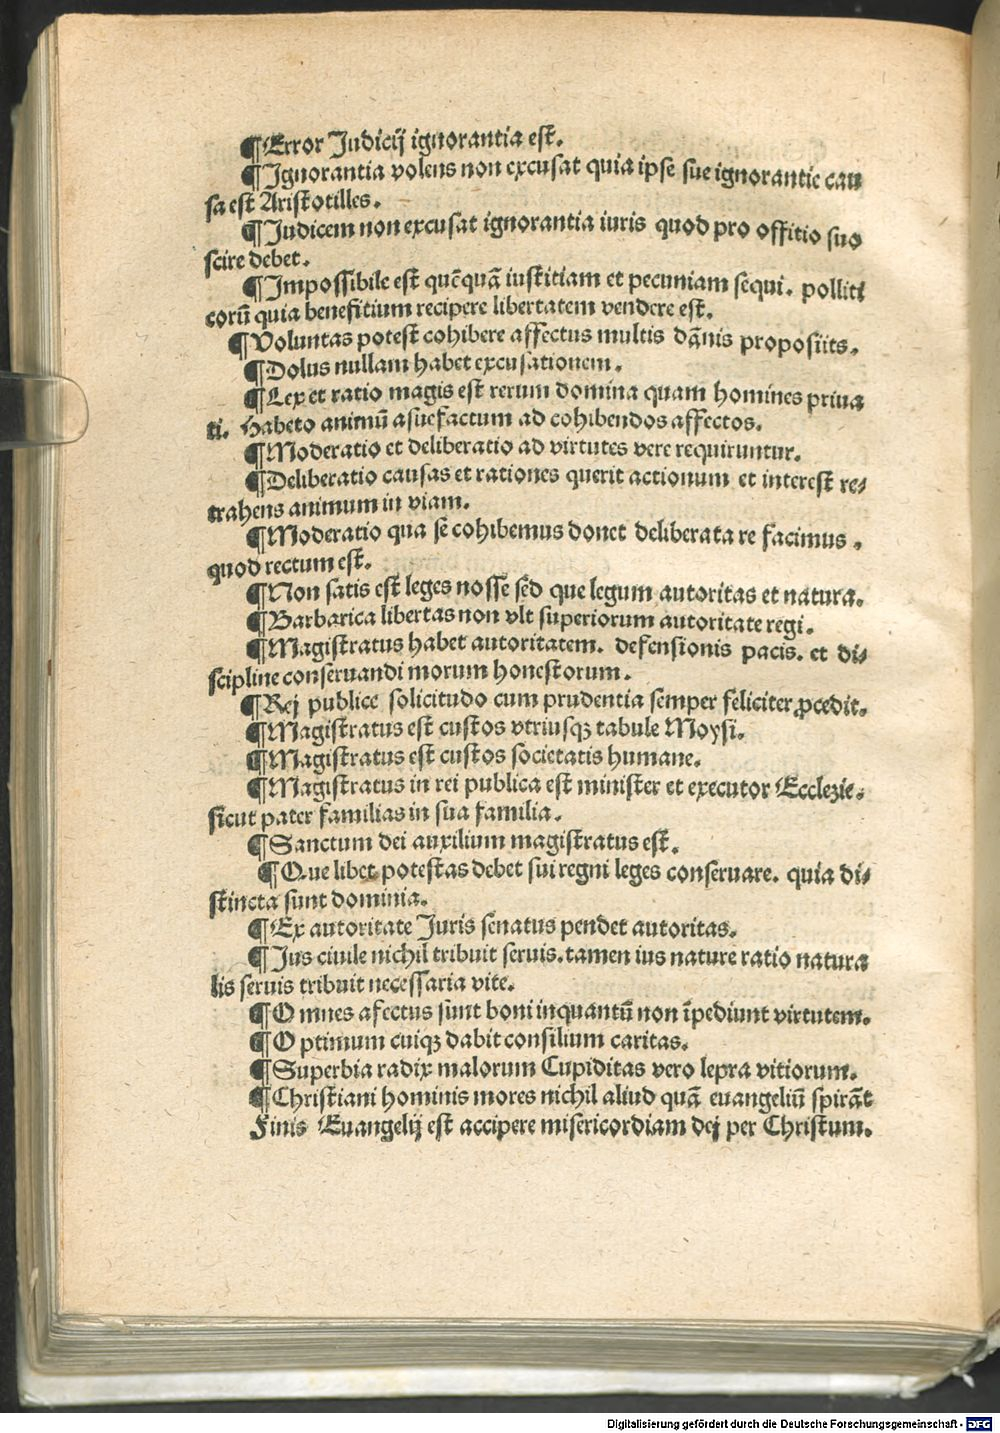 ¶Error Judicij ignorantia est.
¶Ignorantia volens non excusat quia ipse sue ignorantie cau
sa est Aristotilles.
¶Judicem non excusat ignorantia iuris quod pro offitio suo
scire debet.
¶Impossibile est quēquā iustitiam et pecuniam sequi. polliti
corū quia benefitium recipere libertatem vendere est.
¶Voluntas potest cohibere affectus multis dānis propositis.
¶Dolus nullam habet excusationem.
¶Lex et ratio magis est rerum domina quam homines priua
ti. Habeto animū asuefactum ad cohibendos affectos.
¶Moderatio et deliberatio ad virtutes vere requiruntur.
¶Deliberatio causas et rationes querit actionum et interest re⸗
trahens animum in viam.
¶Moderatio qua se cohibemus donec deliberata re facimus.
quod rectum est.
¶Non satis est leges nosse sed que legum autoritas et natura.
¶Barbarica libertas non vlt superiorum autoritate regi.
¶Magistratus habet autoritatem. defensionis pacis. et di⸗
scipline conseruandi morum honestorum.
¶Rej publice solicitudo cum prudentia semper feliciter ꝓcedit.
¶Magistratus est custos vtriusqꝫ tabule Moysi.
¶Magistratus est custos societatis humane.
¶Magistratus in rei publica est minister et executor Ecclezie.
sicut pater familias in sua familia.
¶Sanctum dei auxilium magistratus est.
¶Que libet potestas debet sui regni leges conseruare. quia di⸗
stincta sunt dominia.
¶Ex autoritate Juris senatus pendet autoritas.
¶Jus ciuile nichil tribuit seruis. tamen ius nature ratio natura
lis seruis tribuit necessaria vite.
¶Omnes afectus sunt boni inquantū non īpediunt virtutem.
¶Optimum cuiqꝫ dabit consilium caritas.
¶Superbia radix malorum Cupiditas vero lepra vitiorum.
¶Christiani hominis mores nichil aliud quā euangeliū spirāt
Finis Euangelij est accipere misericordiam dej per Christum.
Digitalisierung gefördert durch die Deutsche Forschungsgemeinschaft - DFG